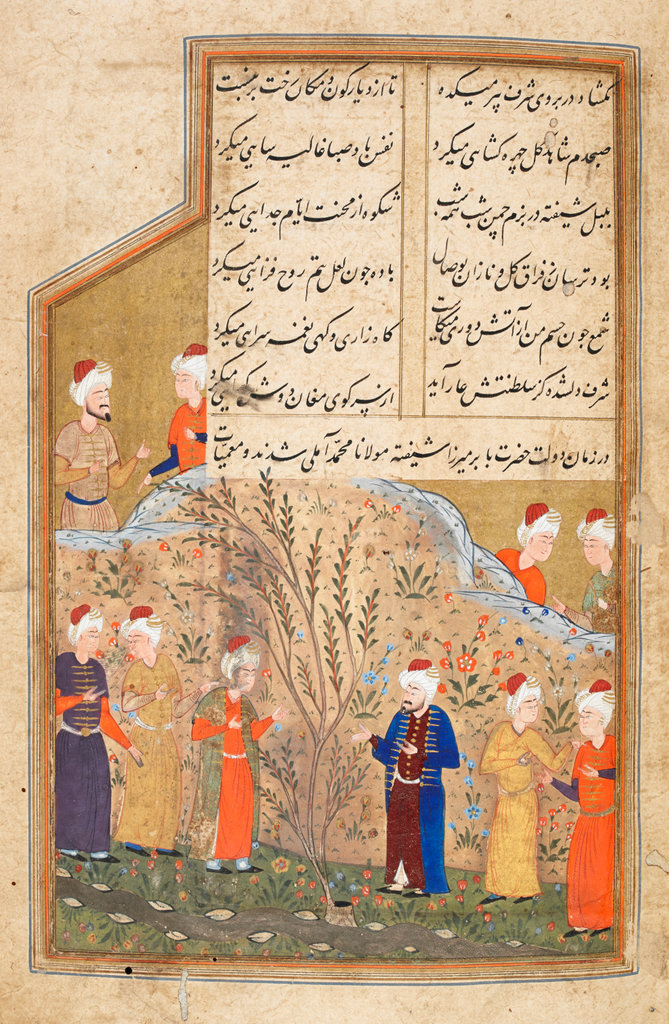 نکشاد در بروی شرف پیر میکده تا از دیار کون و مکان رخت بر نبست
صبحدم شاهد گل چهره کشایی میکرد نفس باد صبا غالیه سایی میکرد
بلبل شیفته در بزم چمن شب همه شب شکوه از محنت ایام جدایی میکرد
بود ترسان ز فراق گل و نازان بوصال باده چون لعل بتم روح فزایی میکرد
شمع چون جسم من از آتش دوری میکاست کاه زاری و کهی نغمه سرایی میکرد
شرف دلشده کز سلطنتش عار آید از سر کوی مغان دوش کدایی میکرد
در زمان دولت حضرت بابر میرزا شیفته مولانا محمد آملی شدند و معمیات